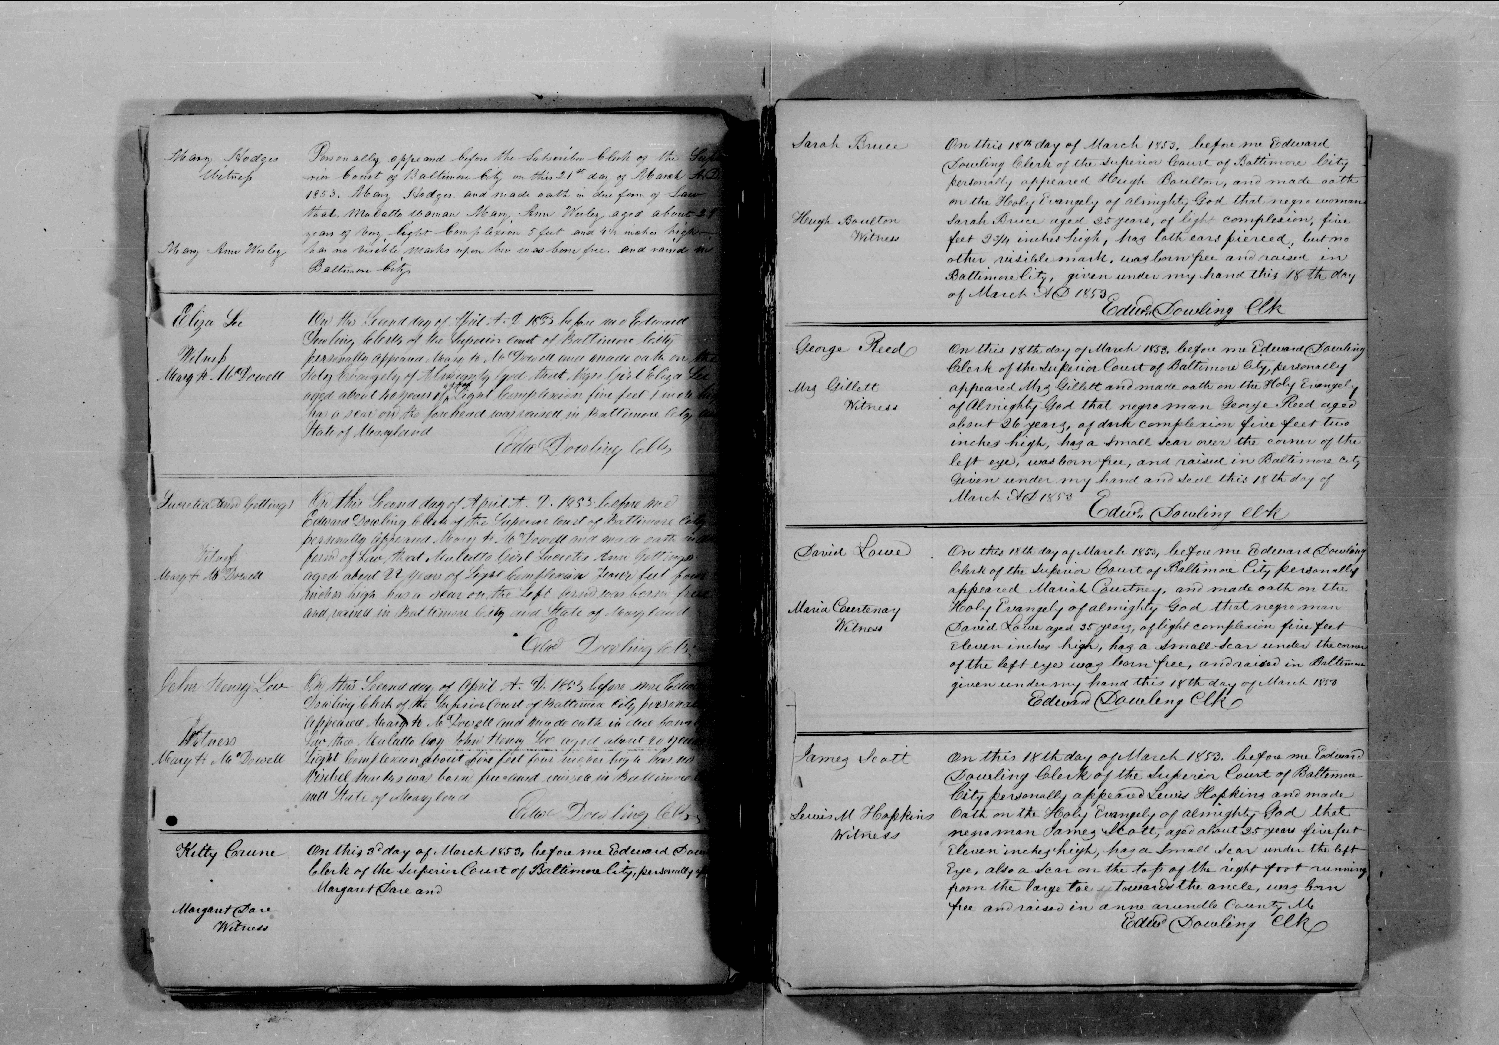 Mary Hodges
Witness
Mary Ann Wesley
Personally appeared before the Subscriber Clerk of the Supe
rior Court of Baltimore City on this 21st day of March A.D.
1853. Mary Hodges and made oath in due form of Law
that Mulatto woman Mary Ann Wesley aged about
years of very light Complexion 5 feet and inches high
has no visible marks upon her was born free and raised in
Baltimore City
Eliza Lee
Witness
Mary H McDowell
On this Second day of April A.D. 1853 before me Edward
Dowling Clerk of the Superior Court of Baltimore City
personally appeared Mary H McDowell and made oath on the
Holy Evangely of Almighty God that Negro Girl Eliza Lee
aged about years of Light Complexion five feet
has a scar on the forehead was raised in Baltimore City and
State of Maryland
Edwd Dowling Clk
Lucretia Ann Gettings
Witness
Mary H McDowell
On this Second day of April A.D. 1853 before me
Edward Dowling Clerk of the Superior Court of Baltimore City
personally appeared Mary H McDowell and made oath in due
form of Law that Mulatto Girl Lucretia Ann Gettings
aged about 22 years of Light Complexion Four feet four
inches high has a scar on the left wrist was born free
and raised in Baltimore City and State of Maryland
Edwd Dowling Clk
John Henry Low
Witness
Mary H McDowell
On this Second day of April A.D. 1853 before me Edward
Dowling Clerk of the Superior Court of Baltimore City personally
appeared Mary H McDowell and made oath in due form of
Law that Mulatto boy John Henry Low aged about 20 years
Light Complexion about five feet four inches high has no
Visibel marks was born free and raised in Baltimore
State of Maryland
Edwd Dowling Clk
Kitty Corune
Margaret Dare
Witness
On this 3d day of March 1853, before me Edward Dowling
Clerk of the Superior Court of Baltimore City, personally ap
Margaret Dare and
Sarah Bruce
Hugh Boulton
Witness
On this 18th day of March 1853, before me Edward
Dowling Clerk of the Superior Court of Baltimore City
personally appeared Hugh Boulton, and made oath
on the Holy Evangely of almighty God that negro woman
Sarah Bruce aged 25 years, of light complexion, five
feet 2 3/4 inches high, has both ears pierced, but no
other visible mark, was born free and raised in
Baltimore City, given under my hand this 18th day
of March AD 1853
Edwd Dowling Clk
George Reed
Mrs Gillett
Witness
On this 18th day of March 1853, before me Edward Dowling
Clerk of the Superior Court of Baltimore City, personally
appeared Mrs Gillett and made oath on the Holy Evangely
of Almighty God that negro man George Reed aged
about 26 years, of dark complexion five feet two
inches high, has a small scar over the corner of the
left eye, was born free, and raised in Baltimore City
Given under my hand and seal this 18th day of
March AD 1853
Edwd Dowling Clk
David Lowe
Maria Courtenay
Witness
On this 18th day of March 1853, before me Edward Dowling
Clerk of the Superior Court of Baltimore City personally
appeared Mariah Courtney, and made oath on the
Holy Evangely of almighty God that negro man
David Lowe aged 35 years, of light complexion five feet
Eleven inches high, has a small scar under the corner
of the left eye was born free, and raised in Baltimore
given under my hand this 18th day of March 1853
Edward Dowling Clk
James Scott
Lewis M Hopkins
Witness
On this 18th day of March 1853, before me Edward
Dowling Clerk of the Superior Court of Baltimore
City personally appeared Lewis Hopkins and made
Oath on the Holy Evangely of almighty God that
man James Scott, aged about 25 years five feet
Eleven inches high, has a small scar under the left
Eye, also a scar on the top of the right foot running
from the large toe towards the ancle, was born
free and raised in anne arundle County Md
Edwd Dowling Clk